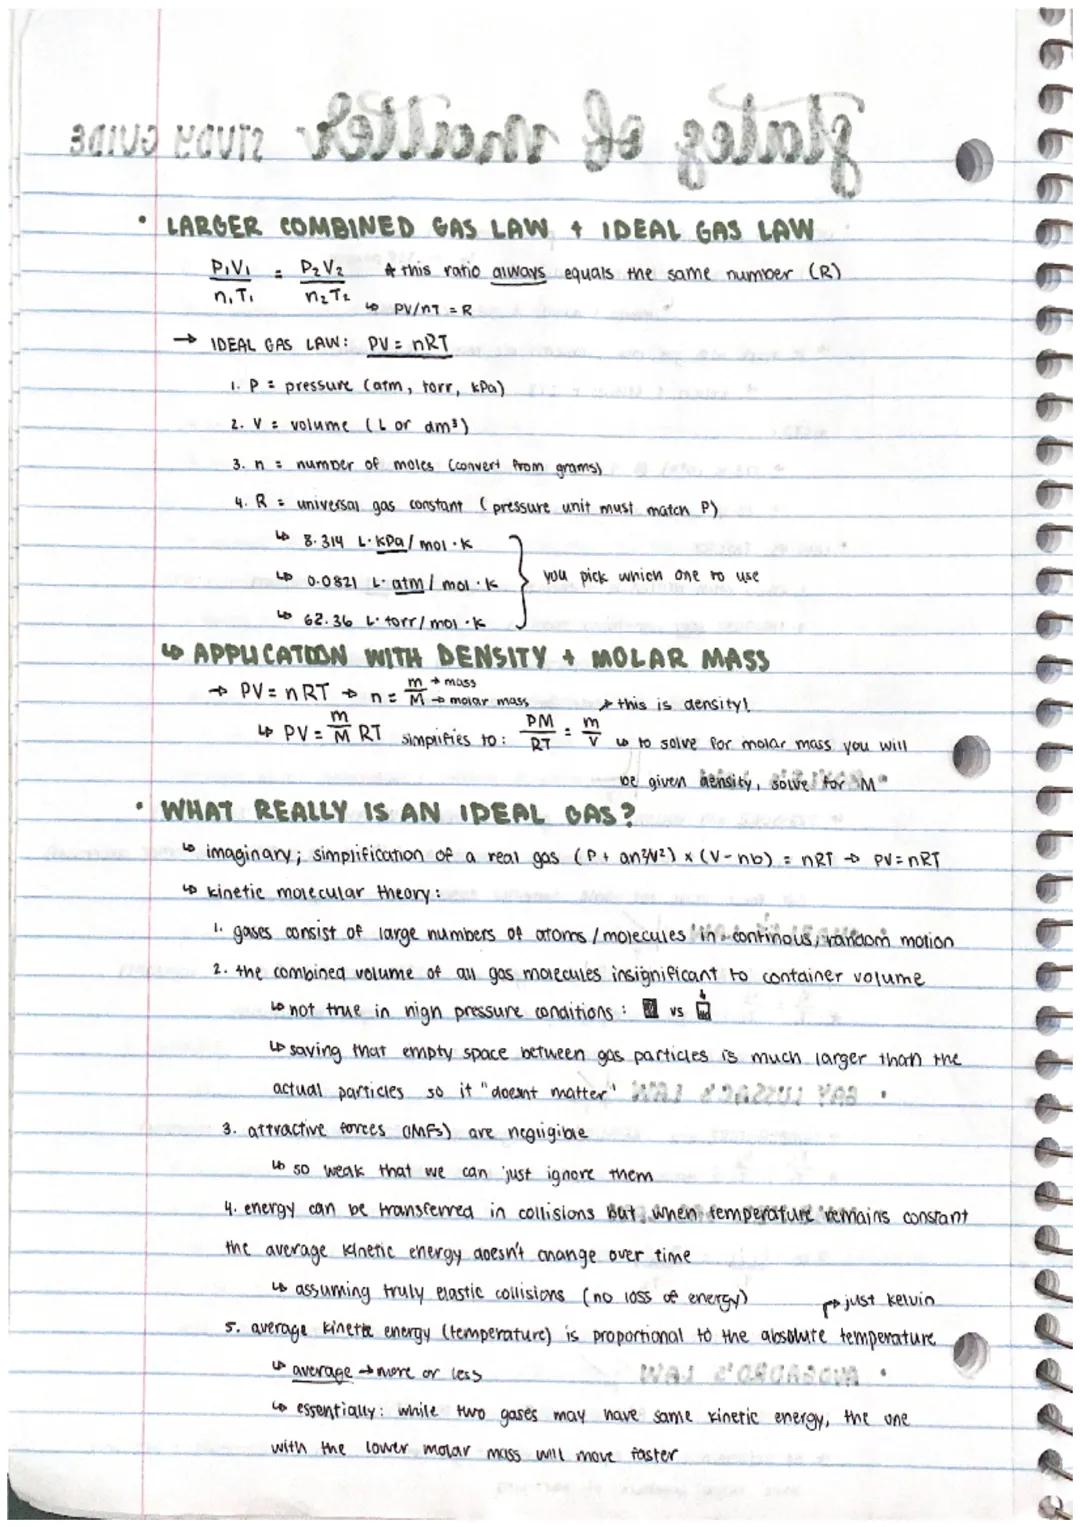 states of matter STUDY GUIDE
• LARGER COMBINED GAS LAW + IDEAL GAS LAW
P₁V₁/n₁T₁ = P₂V₂/n₂T₂ * this ratio always equals the same number (R)
↳ PV/nT = R
→ IDEAL GAS LAW: PV = nRT
1. P = pressure (atm, torr, kPa)
2. V = volume (L or dm³)
3. n = number of moles (convert from grams)
4. R = universal gas constant (pressure unit must match P)
↳ 8.314 L·kPa/mol·K
↳ 0.0821 L·atm/mol·K } you pick which one to use
↳ 62.36 L·torr/mol·K
↳ APPLICATION WITH DENSITY + MOLAR MASS
→ PV = nRT → n = m/M → mass → molar mass
→ this is density!
↳ PV = m/M RT simplifies to: PM/RT = m/V ↳ to solve for molar mass you will
be given density, solve for M
• WHAT REALLY IS AN IDEAL GAS?
↳ imaginary; simplification of a real gas (P + an²/V²) x (V - nb) = nRT → PV = nRT
↳ kinetic molecular theory:
1. gases consist of large numbers of atoms/molecules in continous, random motion
2. the combined volume of all gas molecules insignificant to container volume
↳ not true in high pressure conditions: vs
↳ saying that empty space between gas particles is much larger than the
actual particles so it "doesnt matter"
3. attractive forces (IMFs) are negligible
↳ so weak that we can just ignore them
4. energy can be transferred in collisions but, when temperature remains constant
the average kinetic energy doesn't change over time
↳ assuming truly elastic collisions (no loss of energy)
→ just kelvin
5. average kinetic energy (temperature) is proportional to the absolute temperature
↳ average → more or less
↳ essentially: while two gases may have same kinetic energy, the one
with the lower molar mass will move faster
GAY LUSSAC'S LAW
AVOGADRO'S LAW